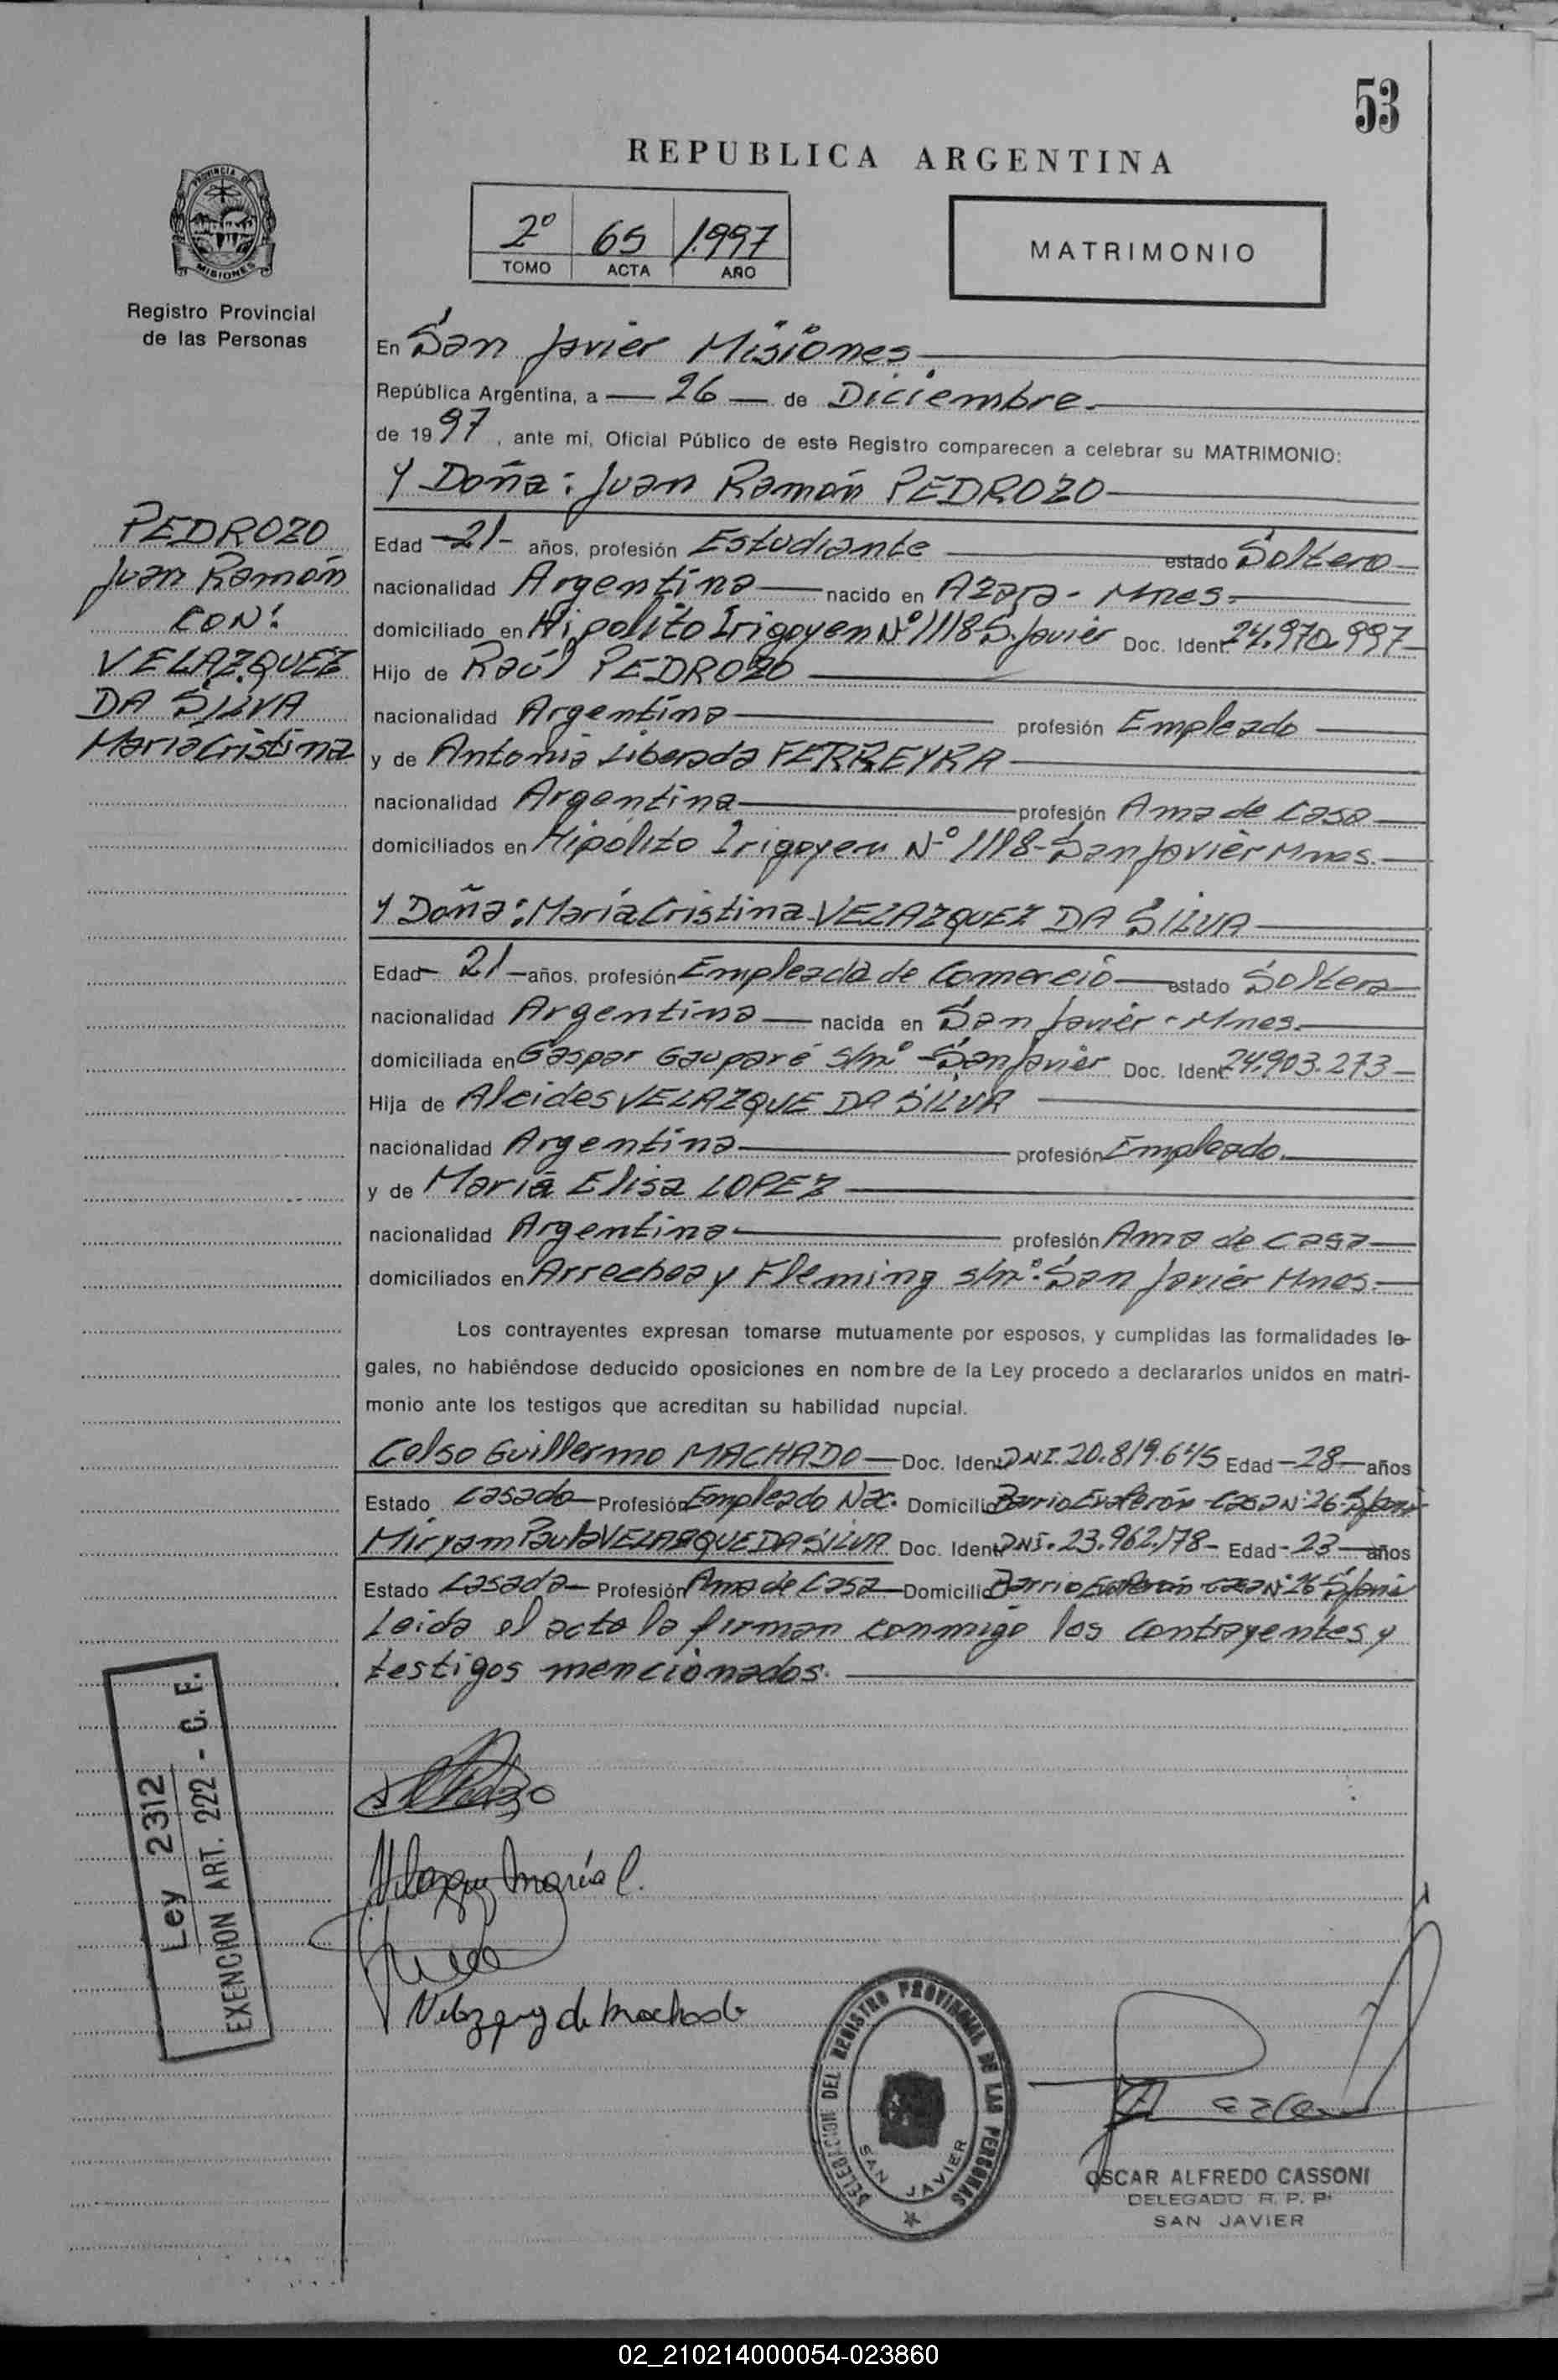 53
REPUBLICA ARGENTINA
PROVINCIA DE
MISIONES
Registro Provincial
de las Personas
2º 65 1.997
TOMO ACTA AÑO
MATRIMONIO
En San Javier Misiones
República Argentina, a — 26 — de Diciembre.
de 1997, ante mí, Oficial Público de este Registro comparecen a celebrar su MATRIMONIO:
Y Doña: Juan Ramón PEDROZO
PEDROZO
Juan Ramón
CON:
VELAZQUEZ
DA SILVA
María Cristina
Edad -21- años, profesión Estudiante estado Soltero
nacionalidad Argentina nacido en Azara - Mnes.
domiciliado en Hipolito Irigoyen Nº 1118-S. Javier Doc. Ident. 24.970.997
Hijo de Raúl PEDROZO
nacionalidad Argentina profesión Empleado
y de Antonia Liberada FERREYRA
nacionalidad Argentina profesión Ama de Casa
domiciliados en Hipólito Irigoyen Nº 1118-San Javier Mnes.
Y Doña: María Cristina VELAZQUEZ DA SILVA
Edad 21 años, profesión Empleada de Comercio estado Soltera
nacionalidad Argentina nacida en San Javier - Mnes.
domiciliada en Gaspar Gauparé s/nº - San Javier Doc. Ident. 24.903.273
Hija de Alcides VELAZQUE DA SILVA
nacionalidad Argentina profesión Empleado.
y de María Elisa LOPEZ
nacionalidad Argentina profesión Ama de Casa
domiciliados en Arrechea y Fleming s/nº. San Javier Mnes.
Los contrayentes expresan tomarse mutuamente por esposos, y cumplidas las formalidades le-
gales, no habiéndose deducido oposiciones en nombre de la Ley procedo a declararlos unidos en matri-
monio ante los testigos que acreditan su habilidad nupcial.
Celso Guillermo MACHADO Doc. Ident. DNI. 20.819.645 Edad -28- años
Estado Casado Profesión Empleado Nac. Domicilio Barrio Eva Perón Casa Nº 26-
Miryam Paula VELAZQUE DA SILVA Doc. Ident. DNI. 23.962.178- Edad -23- años
Estado Casada Profesión Ama de Casa Domicilio Barrio Eva Perón Casa Nº 26
Leida el acta la firman conmigo los contrayentes y
testigos mencionados.
Ley 2312
EXENCION ART. 222 - C. F.
Velazquez María C.
Velazquez de Machado
DELEGACION DEL REGISTRO PROVINCIAL DE LAS PERSONAS
SAN JAVIER
OSCAR ALFREDO CASSONI
DELEGADO R. P. P.
SAN JAVIER
02_210214000054-023860